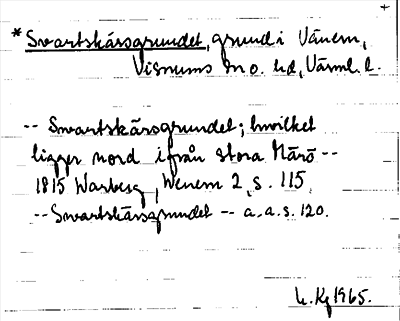 +
*Svartskärsgrundet, grund i Vänern,
Visnums sn o. hd, Värml. l.
-- Svartskärsgrundet; hwilket
ligger nord ifrån stora Närö --
1815 Warberg, Wenern 2, s. 115,
-- Svartskärsgrundet -- a.a.s. 120.
1965.